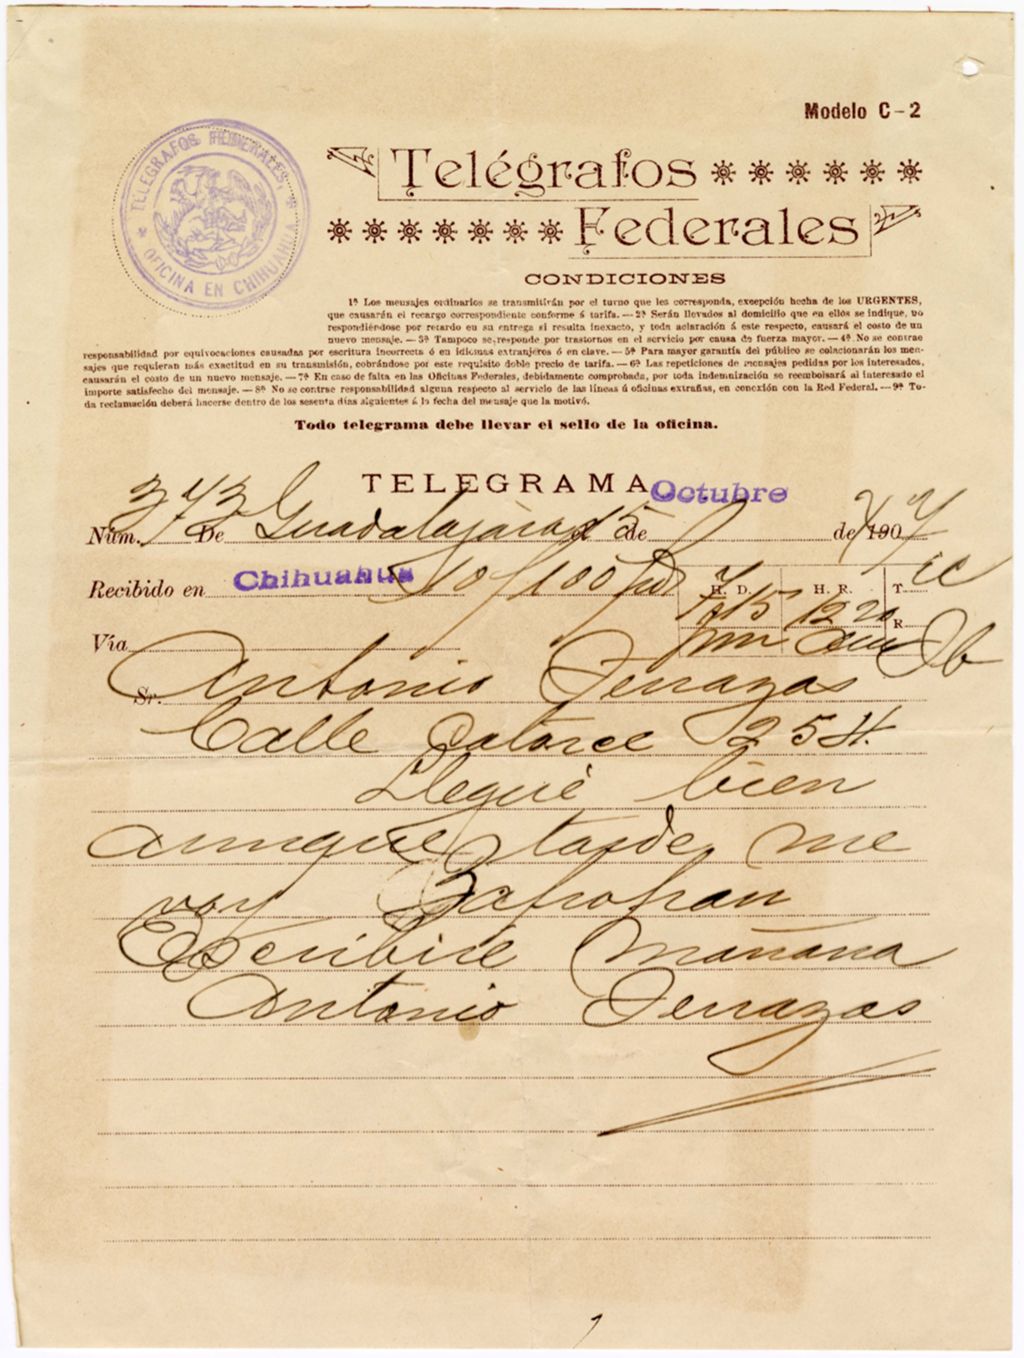 Modelo C-2
TELEGRAFOS FEDERALES,
OFICINA EN CHIHUAHUA
Telégrafos
Federales
CONDICIONES
1ª Los mensajes ordinarios se transmitirán por el turno que les corresponda, excepción hecha de los URGENTES,
que causarán el recargo correspondiente conforme á tarifa. — 2ª Serán llevados al domicilio que en ellos se indique, no
respondiéndose por retardo en su entrega si resulta inexacto, y toda aclaración á este respecto, causará el costo de un
nuevo mensaje. — 3ª Tampoco se responde por trastornos en el servicio por causa de fuerza mayor. — 4ª No se contrae
responsabilidad por equivocaciones causadas por escritura incorrecta ó en idiomas extranjeros ó en clave. — 5ª Para mayor garantía del público se colacionarán los men-
sajes que requieran más exactitud en su transmisión, cobrándose por este requisito doble precio de tarifa. — 6ª Las repeticiones de mensajes pedidas por los interesados,
causarán el costo de un nuevo mensaje. — 7ª En caso de falta en las Oficinas Federales, debidamente comprobada, por toda indemnización se reembolsará al interesado el
importe satisfecho del mensaje. — 8ª No se contrae responsabilidad alguna respecto al servicio de las líneas ú oficinas extrañas, en conexión con la Red Federal. — 9ª To-
da reclamación deberá hacerse dentro de los sesenta días siguientes á la fecha del mensaje que la motivó.
Todo telegrama debe llevar el sello de la oficina.
TELEGRAMA
Núm. 373 De Guadalajara el 15 de Octubre de 1907
Recibido en Chihuahua 10/100 H. D. H. R. T.
Vía 7.15 12 20 R
pm
Sr. Antonio Terrazas
Calle Catorce 254.
Llegué bien
aunque tarde me
voy
Escribiré mañana
Antonio Terrazas